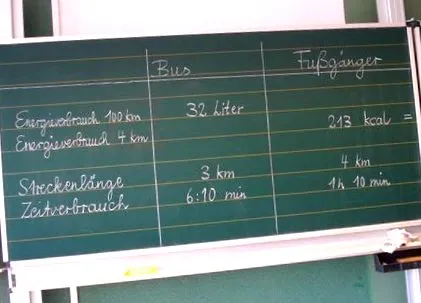 Bus Fußgänger
Energieverbrauch 100 km 32 Liter
Energieverbrauch 4 km 213 kcal =
Streckenlänge 3 km 4 km
Zeitverbrauch 6:10 min 1h 10 min